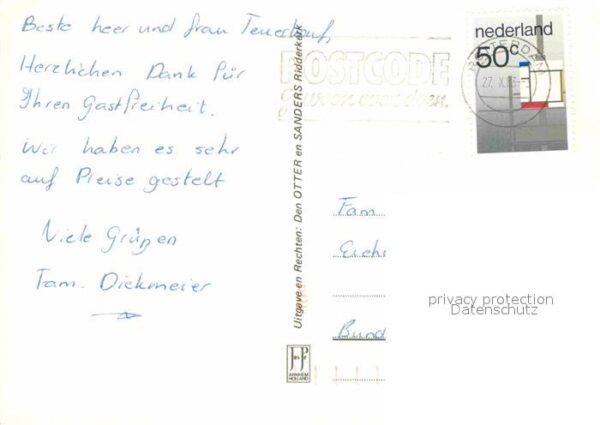 Beste heer und frau Teuerkauf,
Herzlichen Dank für
Ihren Gastfreiheit.
Wir haben es sehr
auf Preise gestelt
Viele Grüßen
Fam. Diekmeier
Uitgave en Rechten: Den OTTER en SANDERS Ridderkerk
JosPé
ARNHEM
HOLLAND
POSTCODE
Gewoon even doen.
nederland
50c
27. X.83
Fam
Eich
Bund
privacy protection
Datenschutz